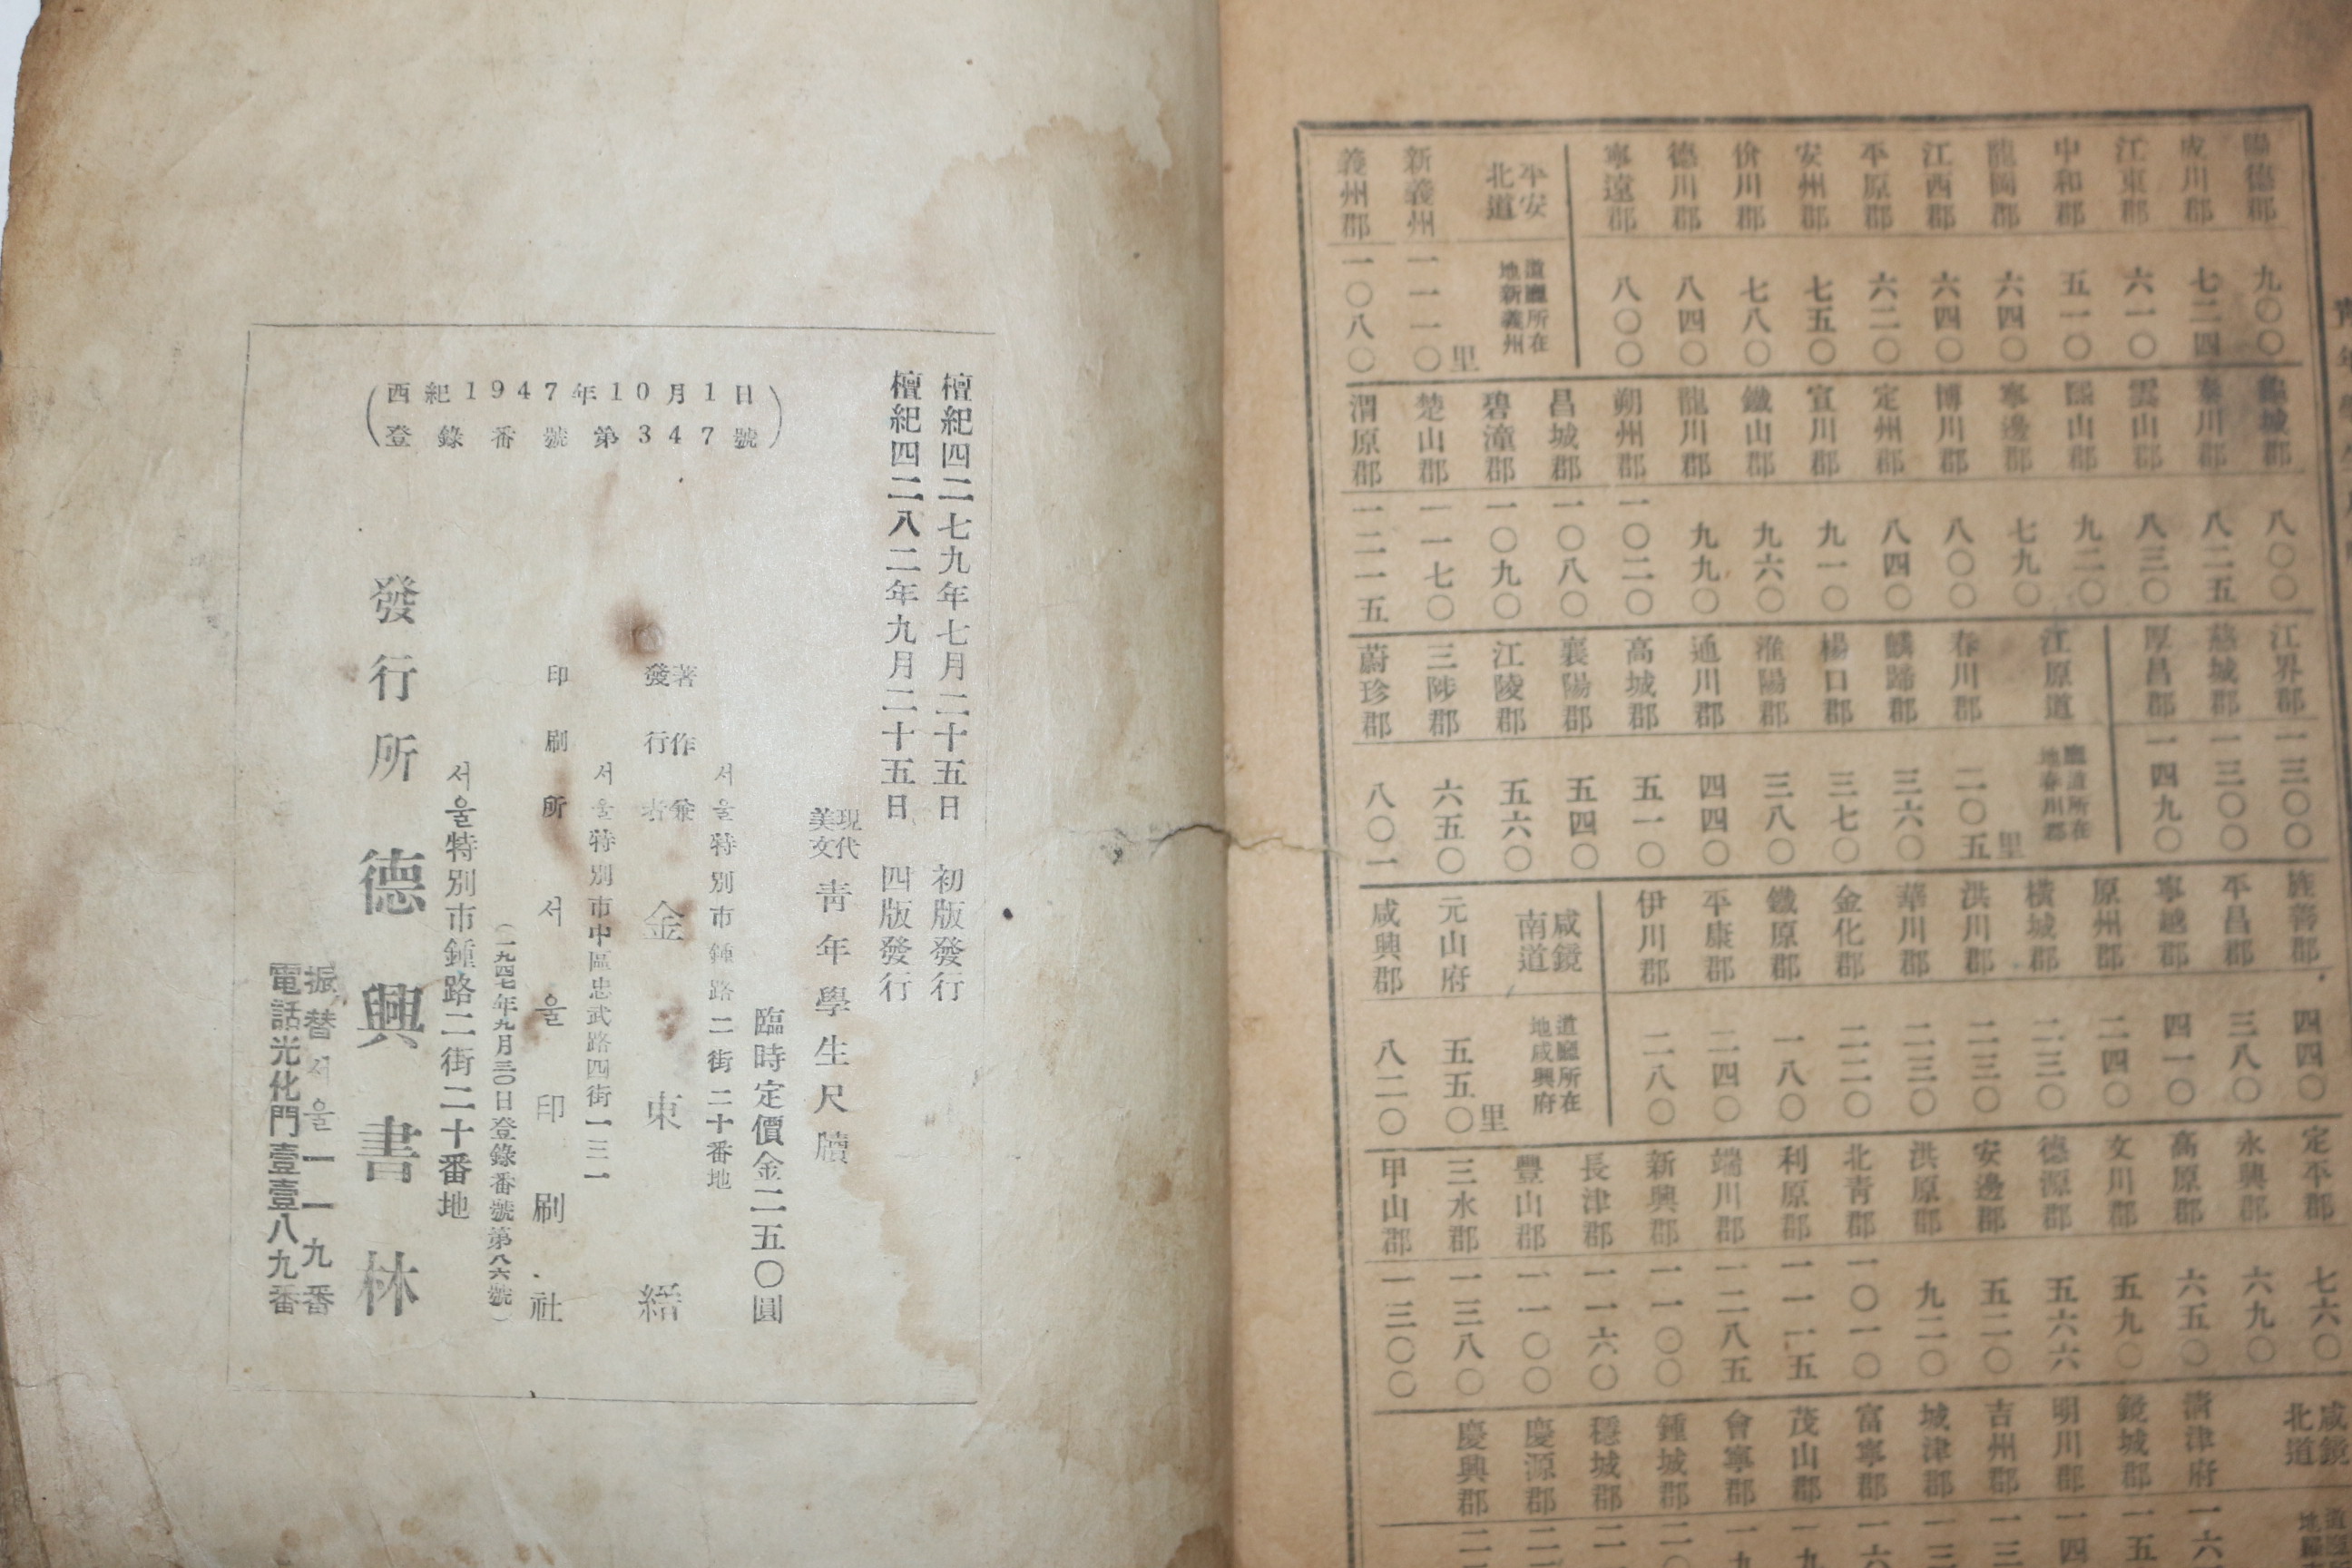 陽德郡 九〇〇
成川郡 七二四
江東郡 六一〇
中和郡 五一〇
龍岡郡 六四〇
江西郡 六四〇
平原郡 六二〇
安州郡 七五〇
价川郡 七八〇
德川郡 八四〇
寧遠郡 八〇〇
平安北道 道廳所在地新義州
新義州 一一一〇里
義州郡 一〇八〇
龜城郡 八〇〇
泰川郡 八二五
雲山郡 八三〇
熙山郡 九二〇
寧邊郡 七九〇
博川郡 八〇〇
定州郡 八四〇
宣川郡 九一〇
鐵山郡 九六〇
龍川郡 九九〇
朔州郡 一〇二〇
昌城郡 一〇八〇
碧潼郡 一〇九〇
楚山郡 一一七〇
渭原郡 一二一五
江界郡 一三〇〇
慈城郡 一三〇〇
厚昌郡 一四九〇
江原道 廳道所在地春川郡
春川郡 二〇五里
麟蹄郡 三六〇
楊口郡 三七〇
淮陽郡 三八〇
通川郡 四四〇
高城郡 五一〇
襄陽郡 五四〇
江陵郡 五六〇
三陟郡 六五〇
蔚珍郡 八〇一
旌善郡 四四〇
平昌郡 三八〇
寧越郡 四一〇
原州郡 二四〇
橫城郡 二三〇
洪川郡 二三〇
華川郡 二三〇
金化郡 二二〇
鐵原郡 一八〇
平康郡 二四〇
伊川郡 二八〇
咸鏡南道 道廳所在地咸興府
元山府 五五〇里
咸興郡 八二〇
定平郡 七六〇
永興郡 六九〇
高原郡 六五〇
文川郡 五九〇
德源郡 五六六
安邊郡 五二〇
洪原郡 九二〇
北青郡 一〇一〇
利原郡 一一一五
端川郡 一二八五
新興郡 一一〇〇
長津郡 一一六〇
豐山郡 一一〇〇
三水郡 一三八〇
甲山郡 一三〇〇
咸鏡北道
清津府 一六
鏡城郡 一五
明川郡 一四
吉州郡 一三
城津郡 一三
富寧郡 一六
茂山郡 一九
會寧郡 一九
鍾城郡 二〇
穩城郡 二一
慶源郡 二一
慶興郡 二一
檀紀四二七九年七月二十五日 初版發行
檀紀四二八二年九月二十五日 四版發行
現代美文 靑年學生尺牘
臨時定價金二五〇圓
서울特別市鍾路二街二十番地
著作兼發行者 金東縉
서울特別市中區忠武路四街一三一
印刷所 서울印刷社
(一九四七年九月三〇日登錄番號第八六號)
서울特別市鍾路二街二十番地
發行所 德興書林
振替서울一一九番
電話光化門壹壹八九番
(西紀1947年10月1日
登錄番號第347號)